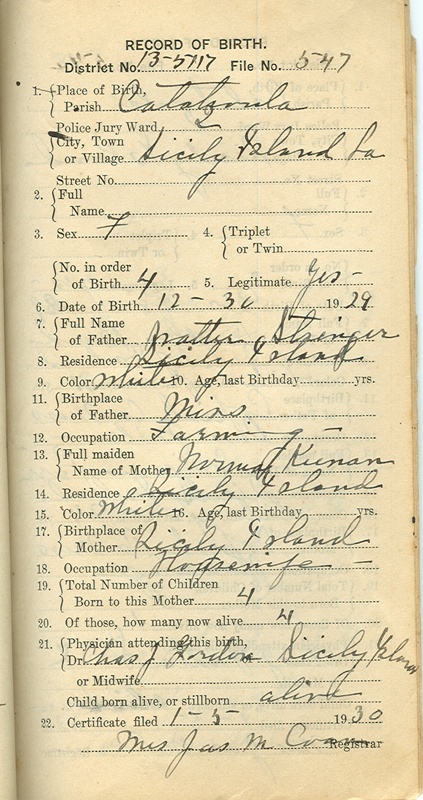 RECORD OF BIRTH.
District No. 13-5717 File No. 547
1. Place of Birth,
Parish Catahoula
Police Jury Ward
City, Town
or Village Sicily Island La
Street No.
2. Full
Name
3. Sex F 4. Triplet
or Twin
No. in order
of Birth 4 5. Legitimate Yes -
6. Date of Birth 12 - 30 1929
7. Full Name
of Father Stringer
8. Residence Sicily Island
9. Color White 10. Age, last Birthday yrs.
11. Birthplace
of Father Miss
12. Occupation Farming -
13. Full maiden
Name of Mother Keenan
14. Residence Sicily Island
15. Color White 16. Age, last Birthday yrs.
17. Birthplace of
Mother Sicily Island
18. Occupation Housewife -
19. Total Number of Children
Born to this Mother 4
20. Of those, how many now alive 4
21. Physician attending this birth,
Dr. Chas J Gordon Sicily Island
or Midwife
Child born alive, or stillborn alive
22. Certificate filed 1 - 5 1930
Mrs Jas M Registrar